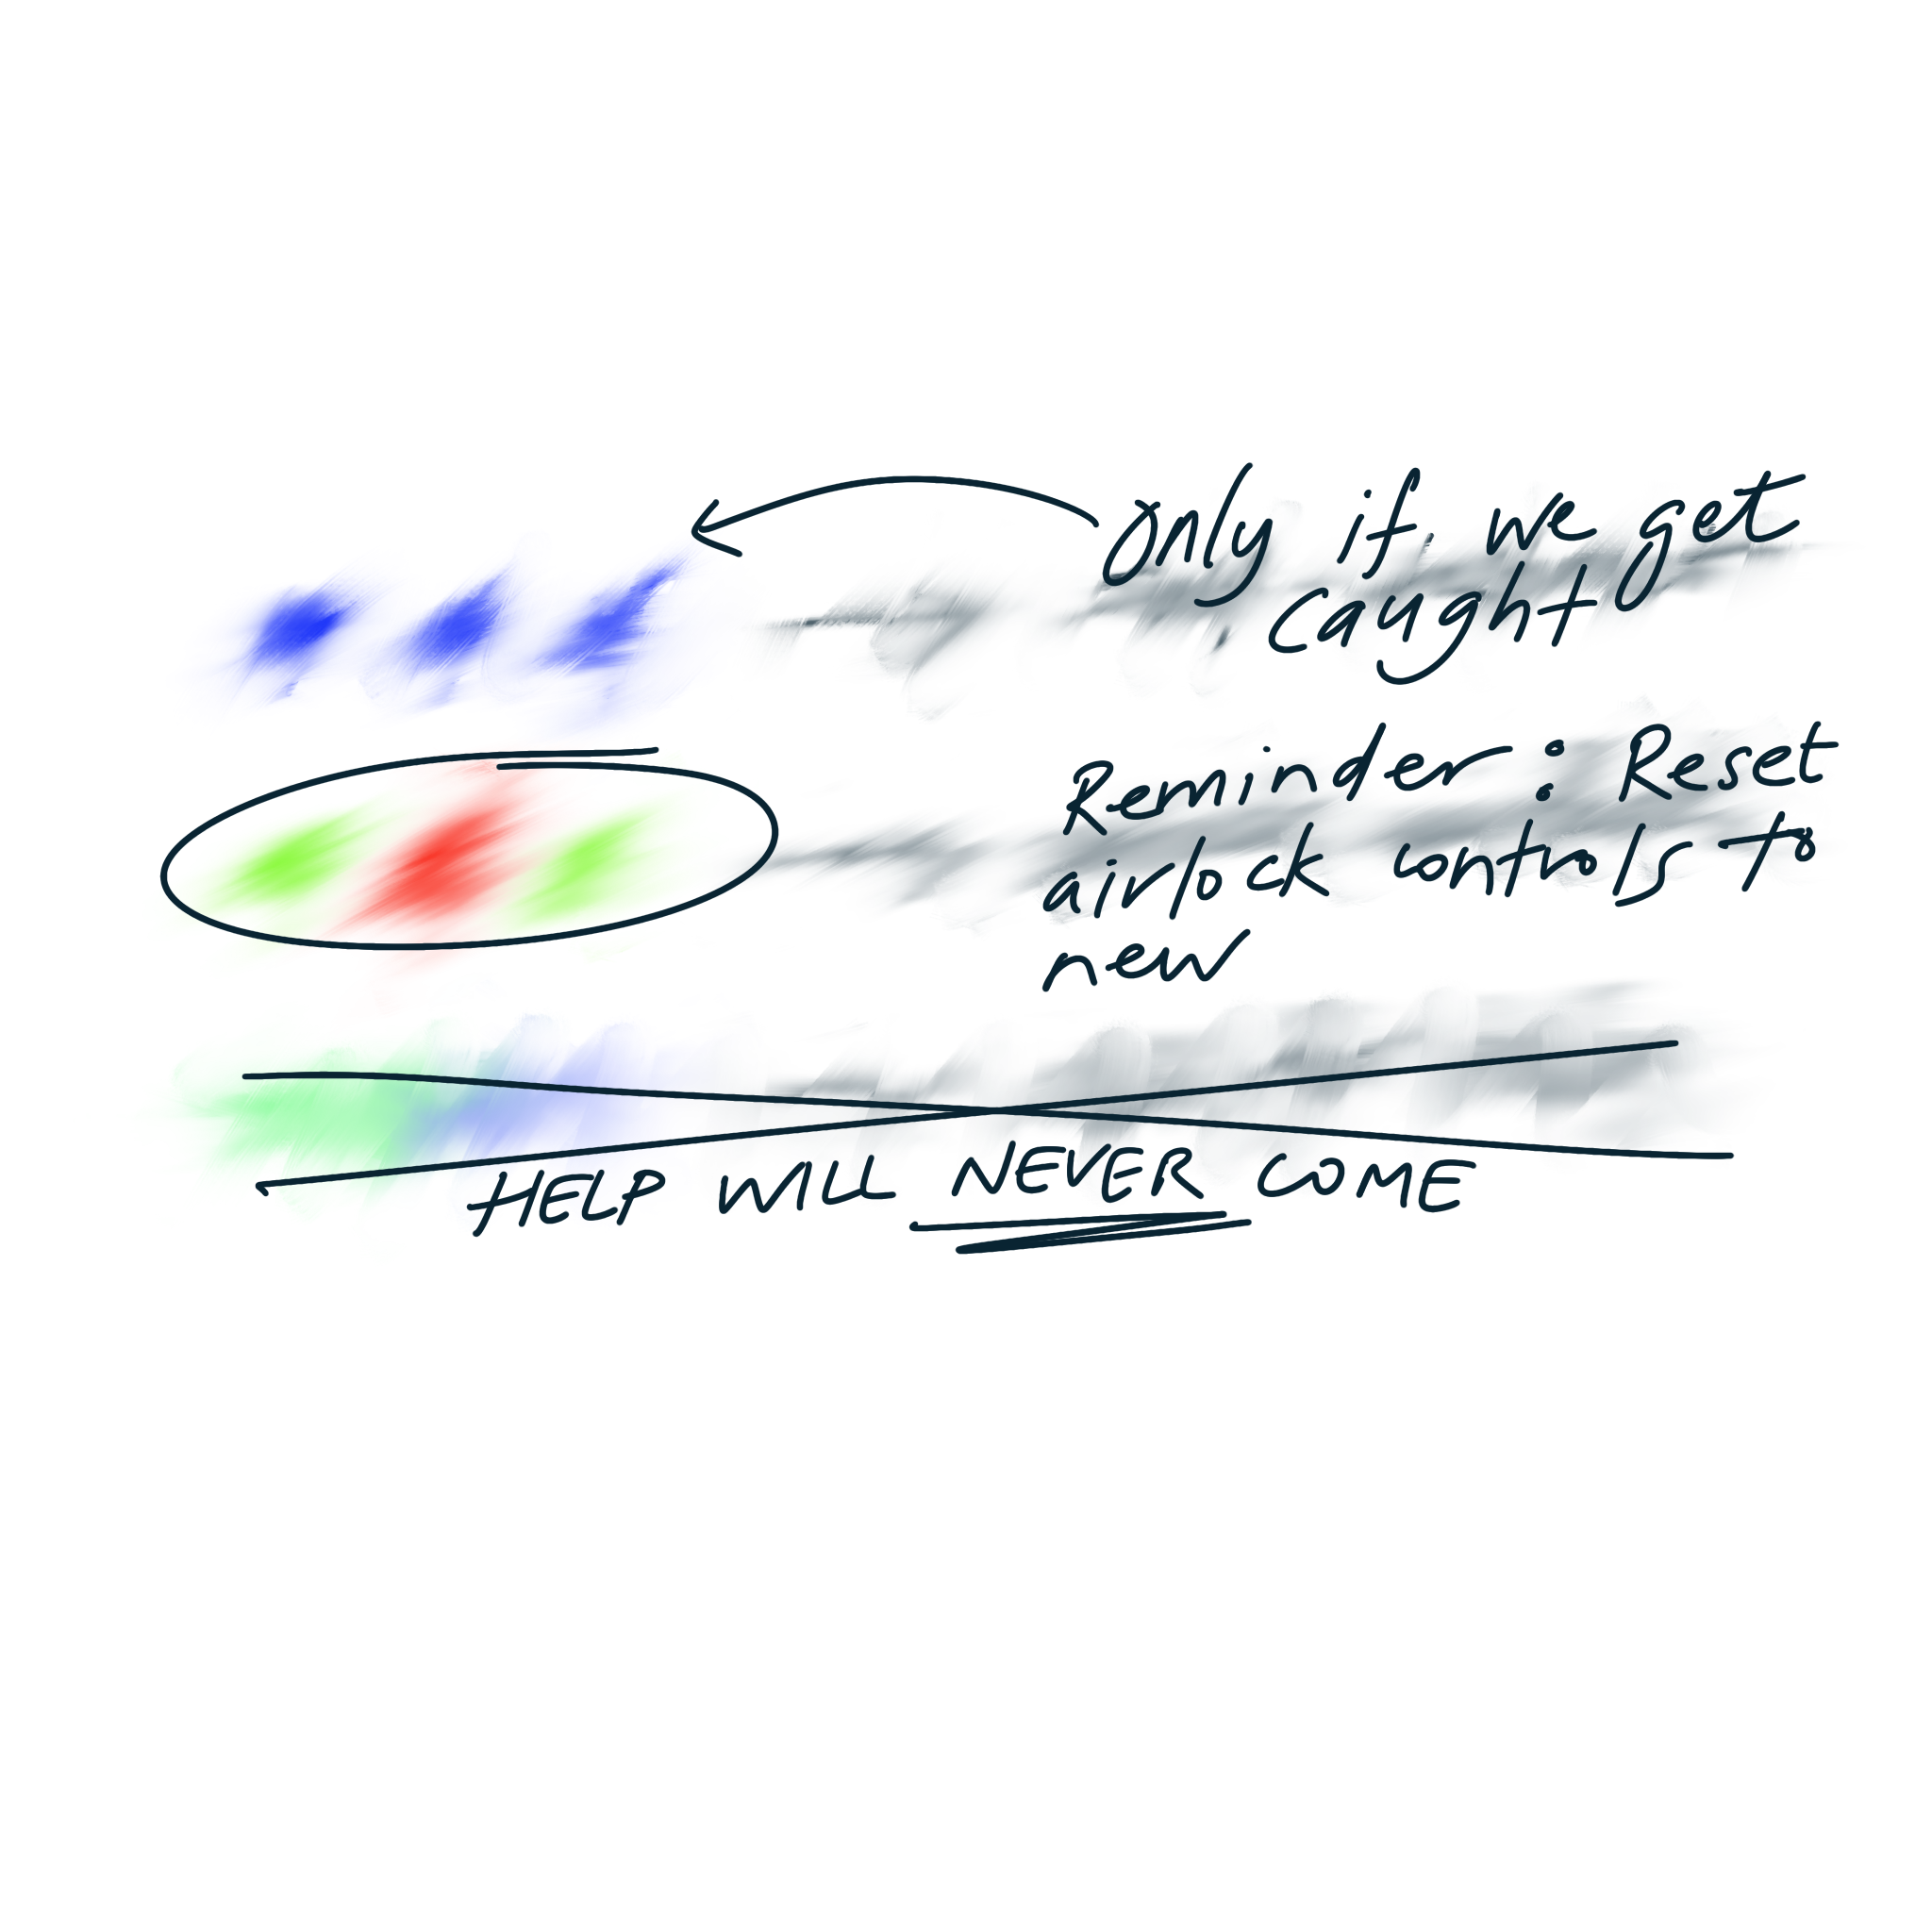 only if we get
caught
Reminder: Reset
airlock controls to
new
HELP WILL NEVER COME